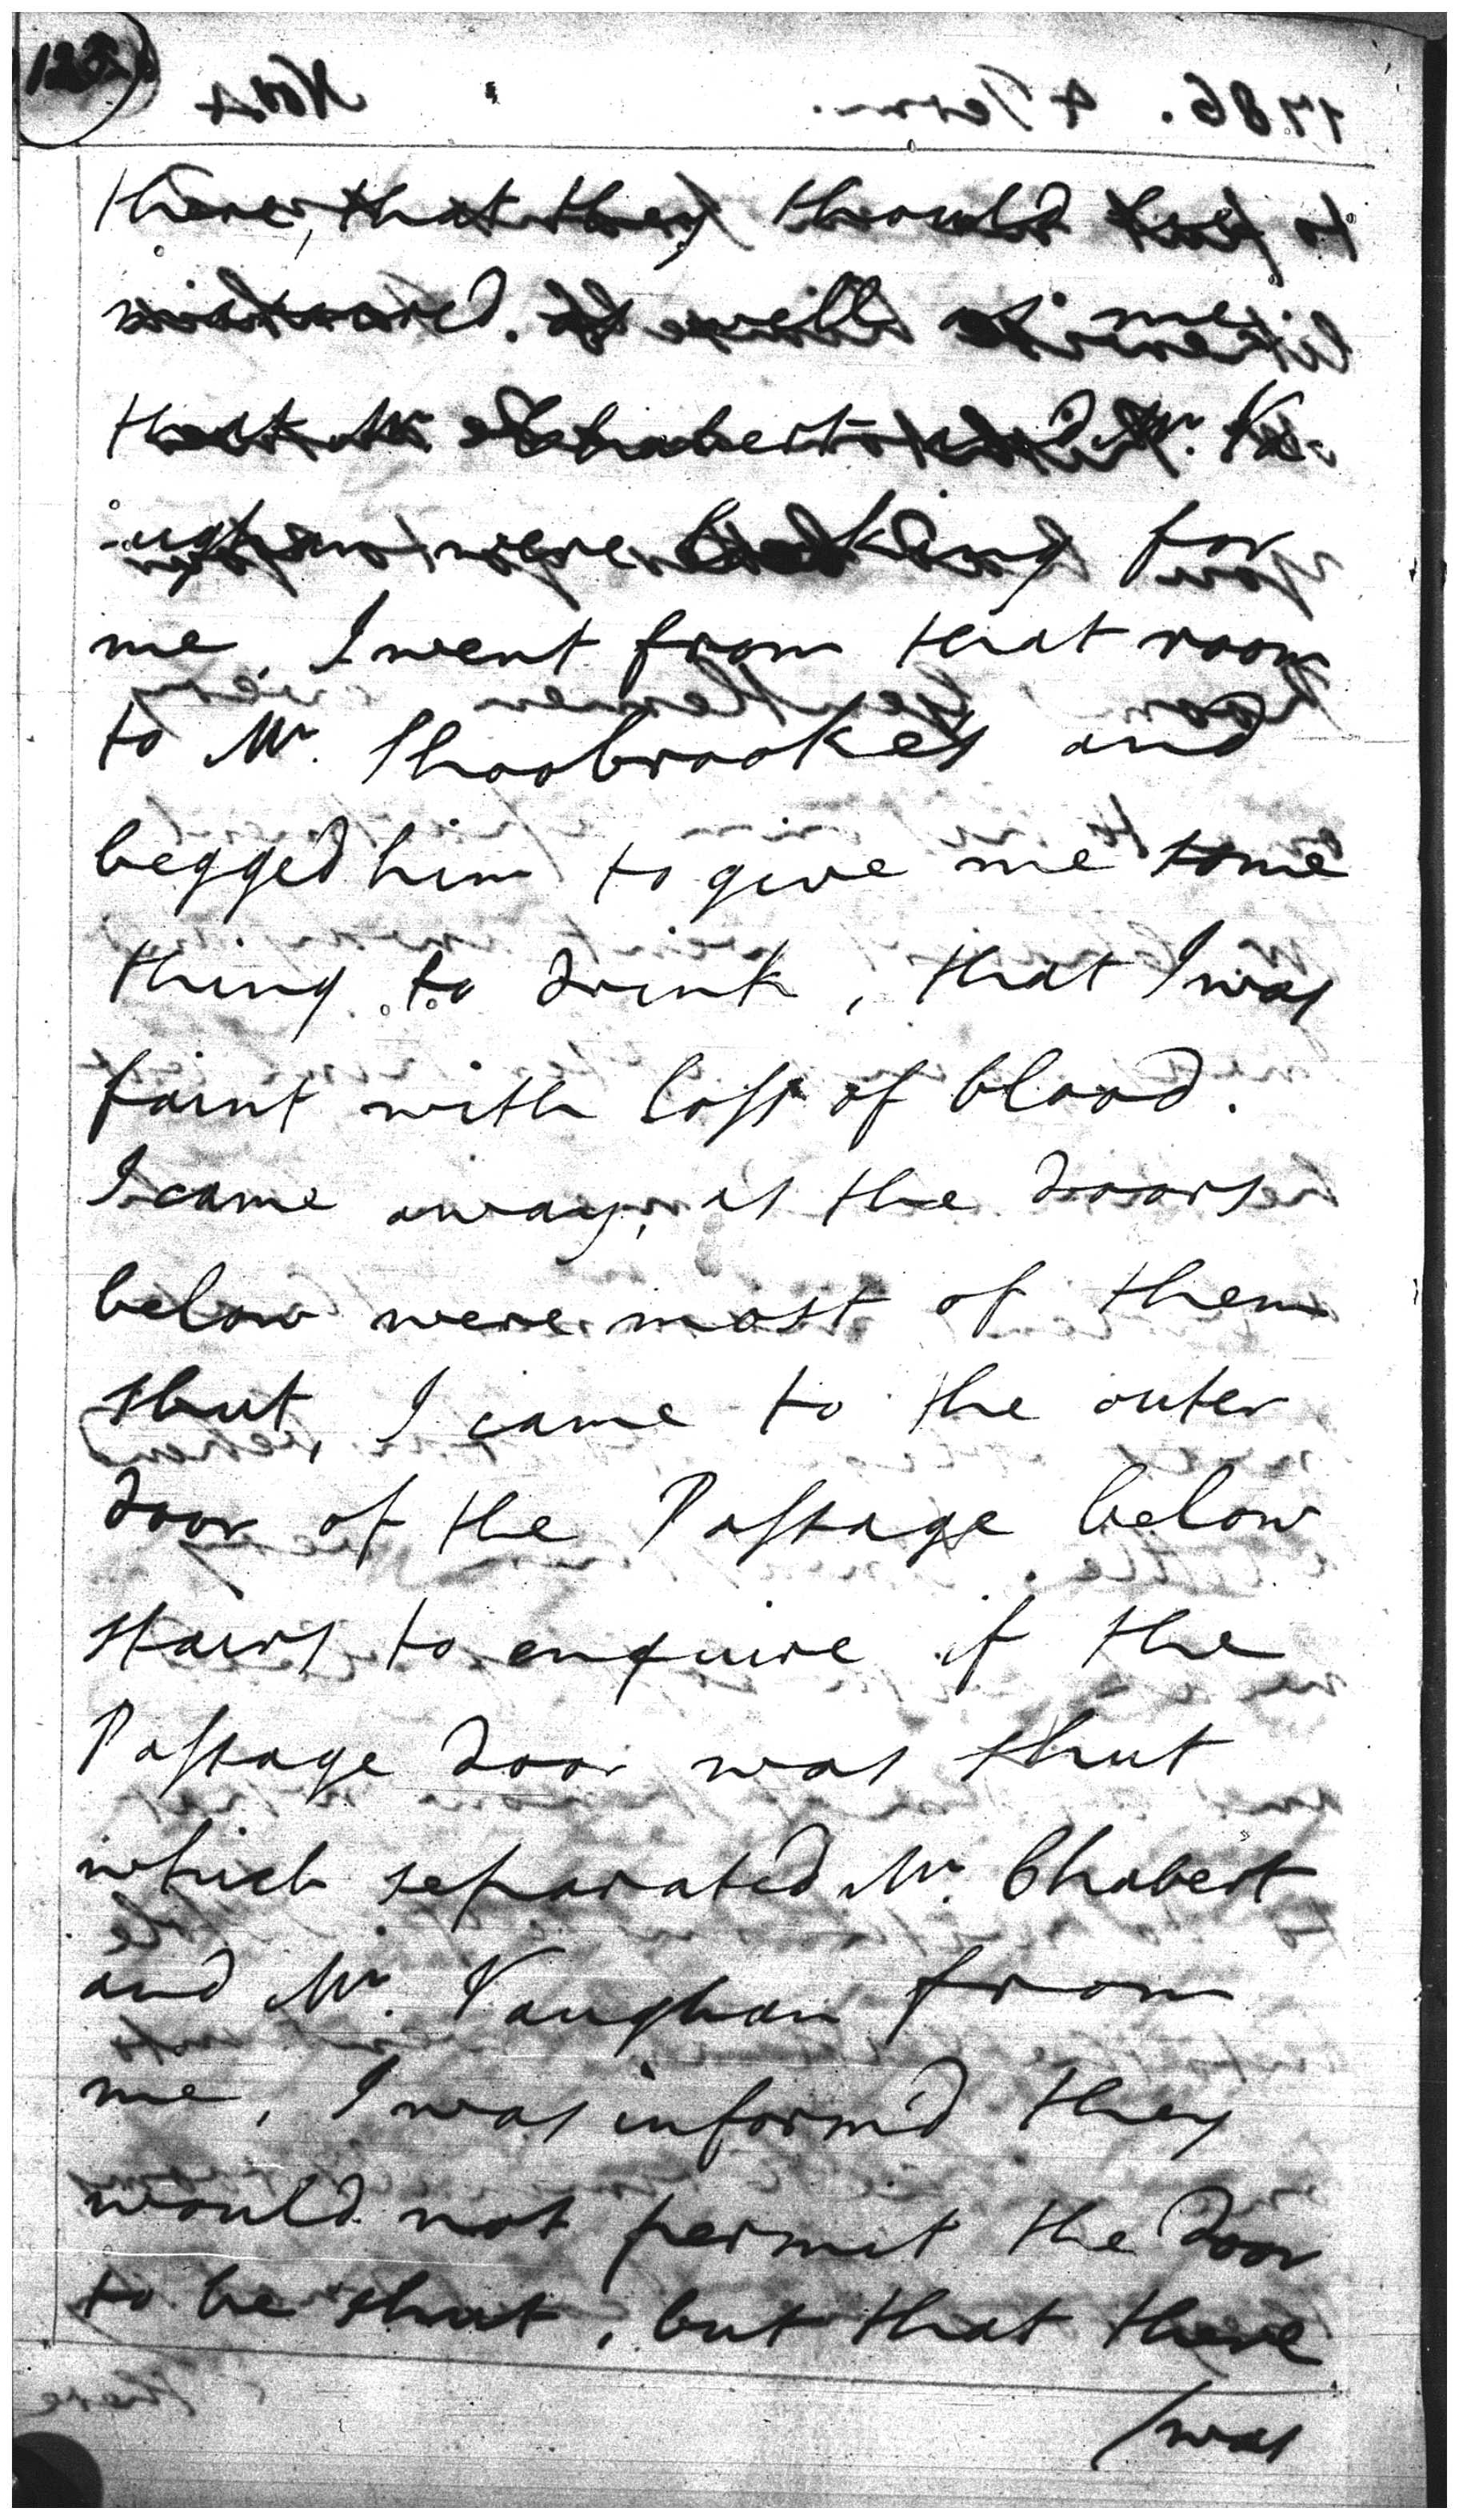 there, that they should
well as me
that Mr. Chabert and Mr. Va-
-ughan were looking for
me, I went from that room
to Mr. Shoobrookes and
begged him to give me some
thing to drink, that I was
faint with loſs of blood.
I came away, as the doors
below were most of them
shut, I came to the outer
door of the Paſsage below
stairs to enquire if the
Paſsage door was shut
which separated Mr. Chabert
and Mr. Vaughan from
me, I was inform'd they
would not permit the door
to be shut, but that there
/was